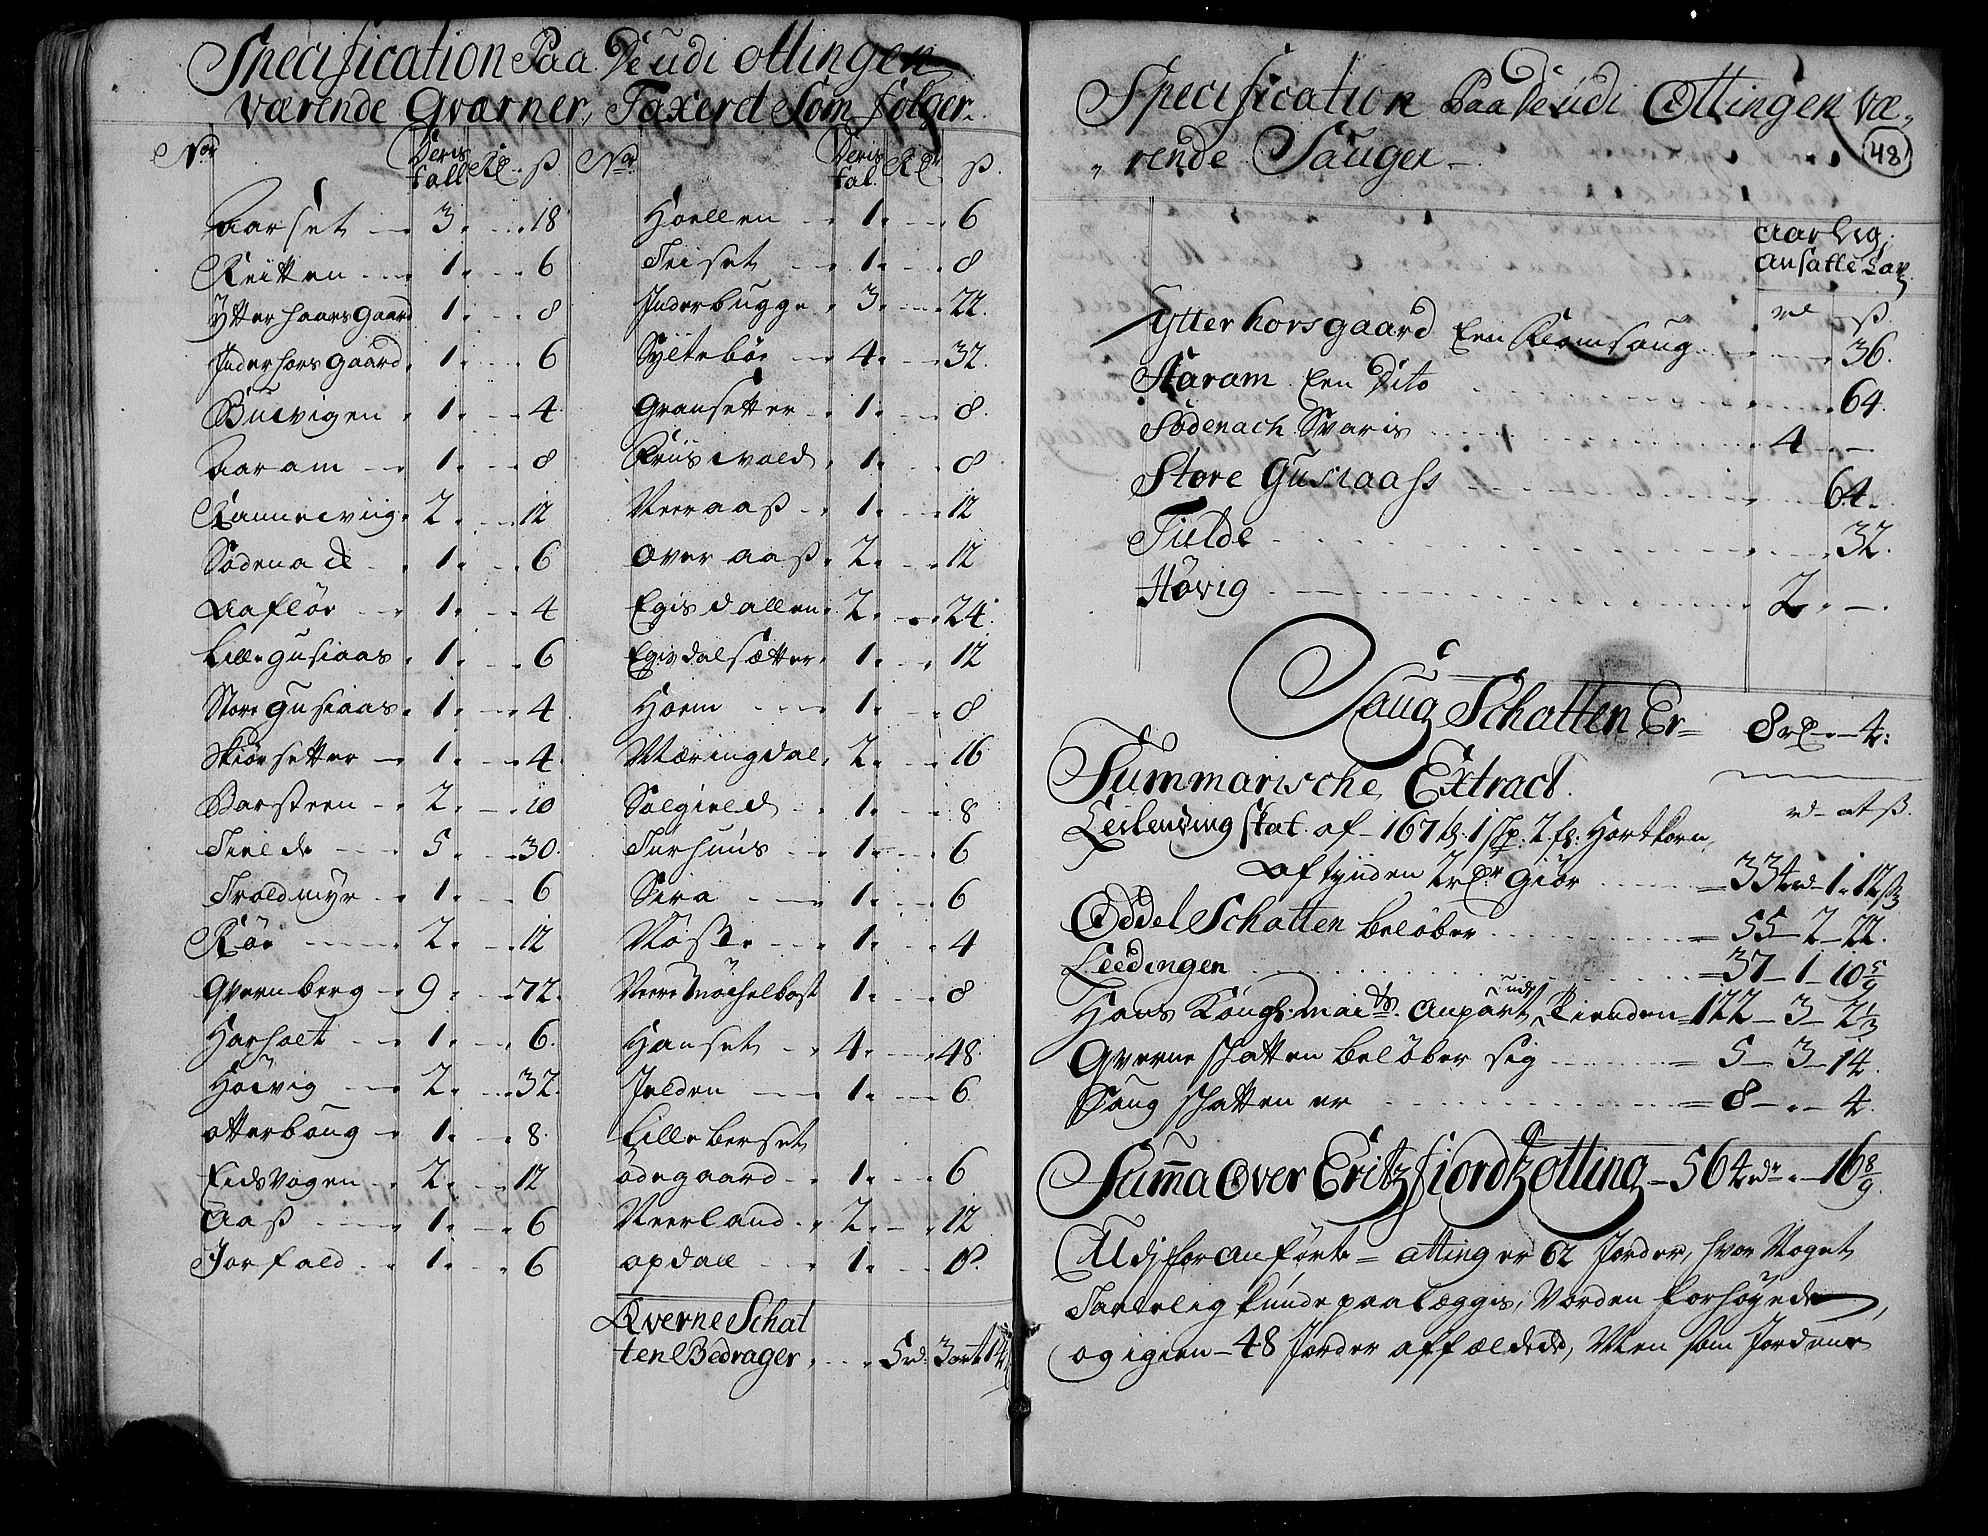 Specification Paa De udi ottingen
værende Qværner, Taxeret Som følger.
No
Deris
tall
Rd
ß
Aarset 3. 18
Reitten 1. 6
Ytterhaarsgaard 1. 8
Inderhorsgaard 1. 6
Buevigen 1. 4
Aaram 1. 8
Ranneviig 2. 12
Sødenack 1. 6
Aaflör 1. 4
Lille Gusiaas 1. 6
Store Gusiaas 1. 4
Skiörsetter 1. 4
Barsteen 2. 10
Tielde 5. 30.
Troldmyr 1. 6
Röe 2. 12
Qvernberg 9. 72.
Harholt 1. 6.
Höevig 2. 32.
otterboug 1. 8.
Eidsvogen 2. 12
Aaß 1. 6
Torfald 1. 6
No
Deris
tal
Rd
ß
Hoellen 1. 6
Teiset 1. 8
Inderbugge 3. 22.
Syltebör 4. 32.
Gransetter 1. 8.
Kriisevold 1. 8
Veeraaß 1. 12
Overaaß 2. 12
Egisdallen 2. 24.
Egisdalsætter 1. 12
Horem 1. 8
Mæringdal 2. 16
Solgield 1. 8
Turhuus 1. 6
Sira 1. 6
Nöste 1. 4
Neere Möchelbost 1. 8
Hanset 4. 48.
Jelden 1. 6
Lilleberset
ödegaard 1. 6
Neerland 2. 12
opdall 1. 8.
Qverne Schat
ten Bedrager 5 rd: 3 ort 14
Specification Paa De udi Ottingen væ-
rende Sauger
48
Aarlig
Ansatte Tax
rd ß
Ytterhorsgaard Een Flomsaug 36.
Aaram Een Dito 64.
Södenach Svaris 4. —
Store Gusiaass 64.
Tielde 32.
Hövig 2. —.
Saug Schatten Er 8 rd. — 4:
Summarische Extract.
rd ort ß.
Leilending skat af 167 td: 1 Sp: 2 f: Hartkorn,
Af tynden 2 rd Giör 334 rd — 1. 12 ß
Oddel Schatten Belöber 55 — 2 — 22.
Leedingen 37 — 1 — 10 5/9
Hans Kongl: Mai ts. Anpart udj Tienden 122 — 3 — 2 1/3
Qverne skatten beløber sig 5 — 3 — 14.
Saug skatten er 8 — . — 4.
Summa Over Eritzfiordtz otting 564 rd . — 16 8/9
Udj for anförte otting er 62 Jorder, hvor Noget
Taaelelig kunde paalæggis, Vorden forhøyede,
og igien 48 Jorder affældede, Men som Jordene